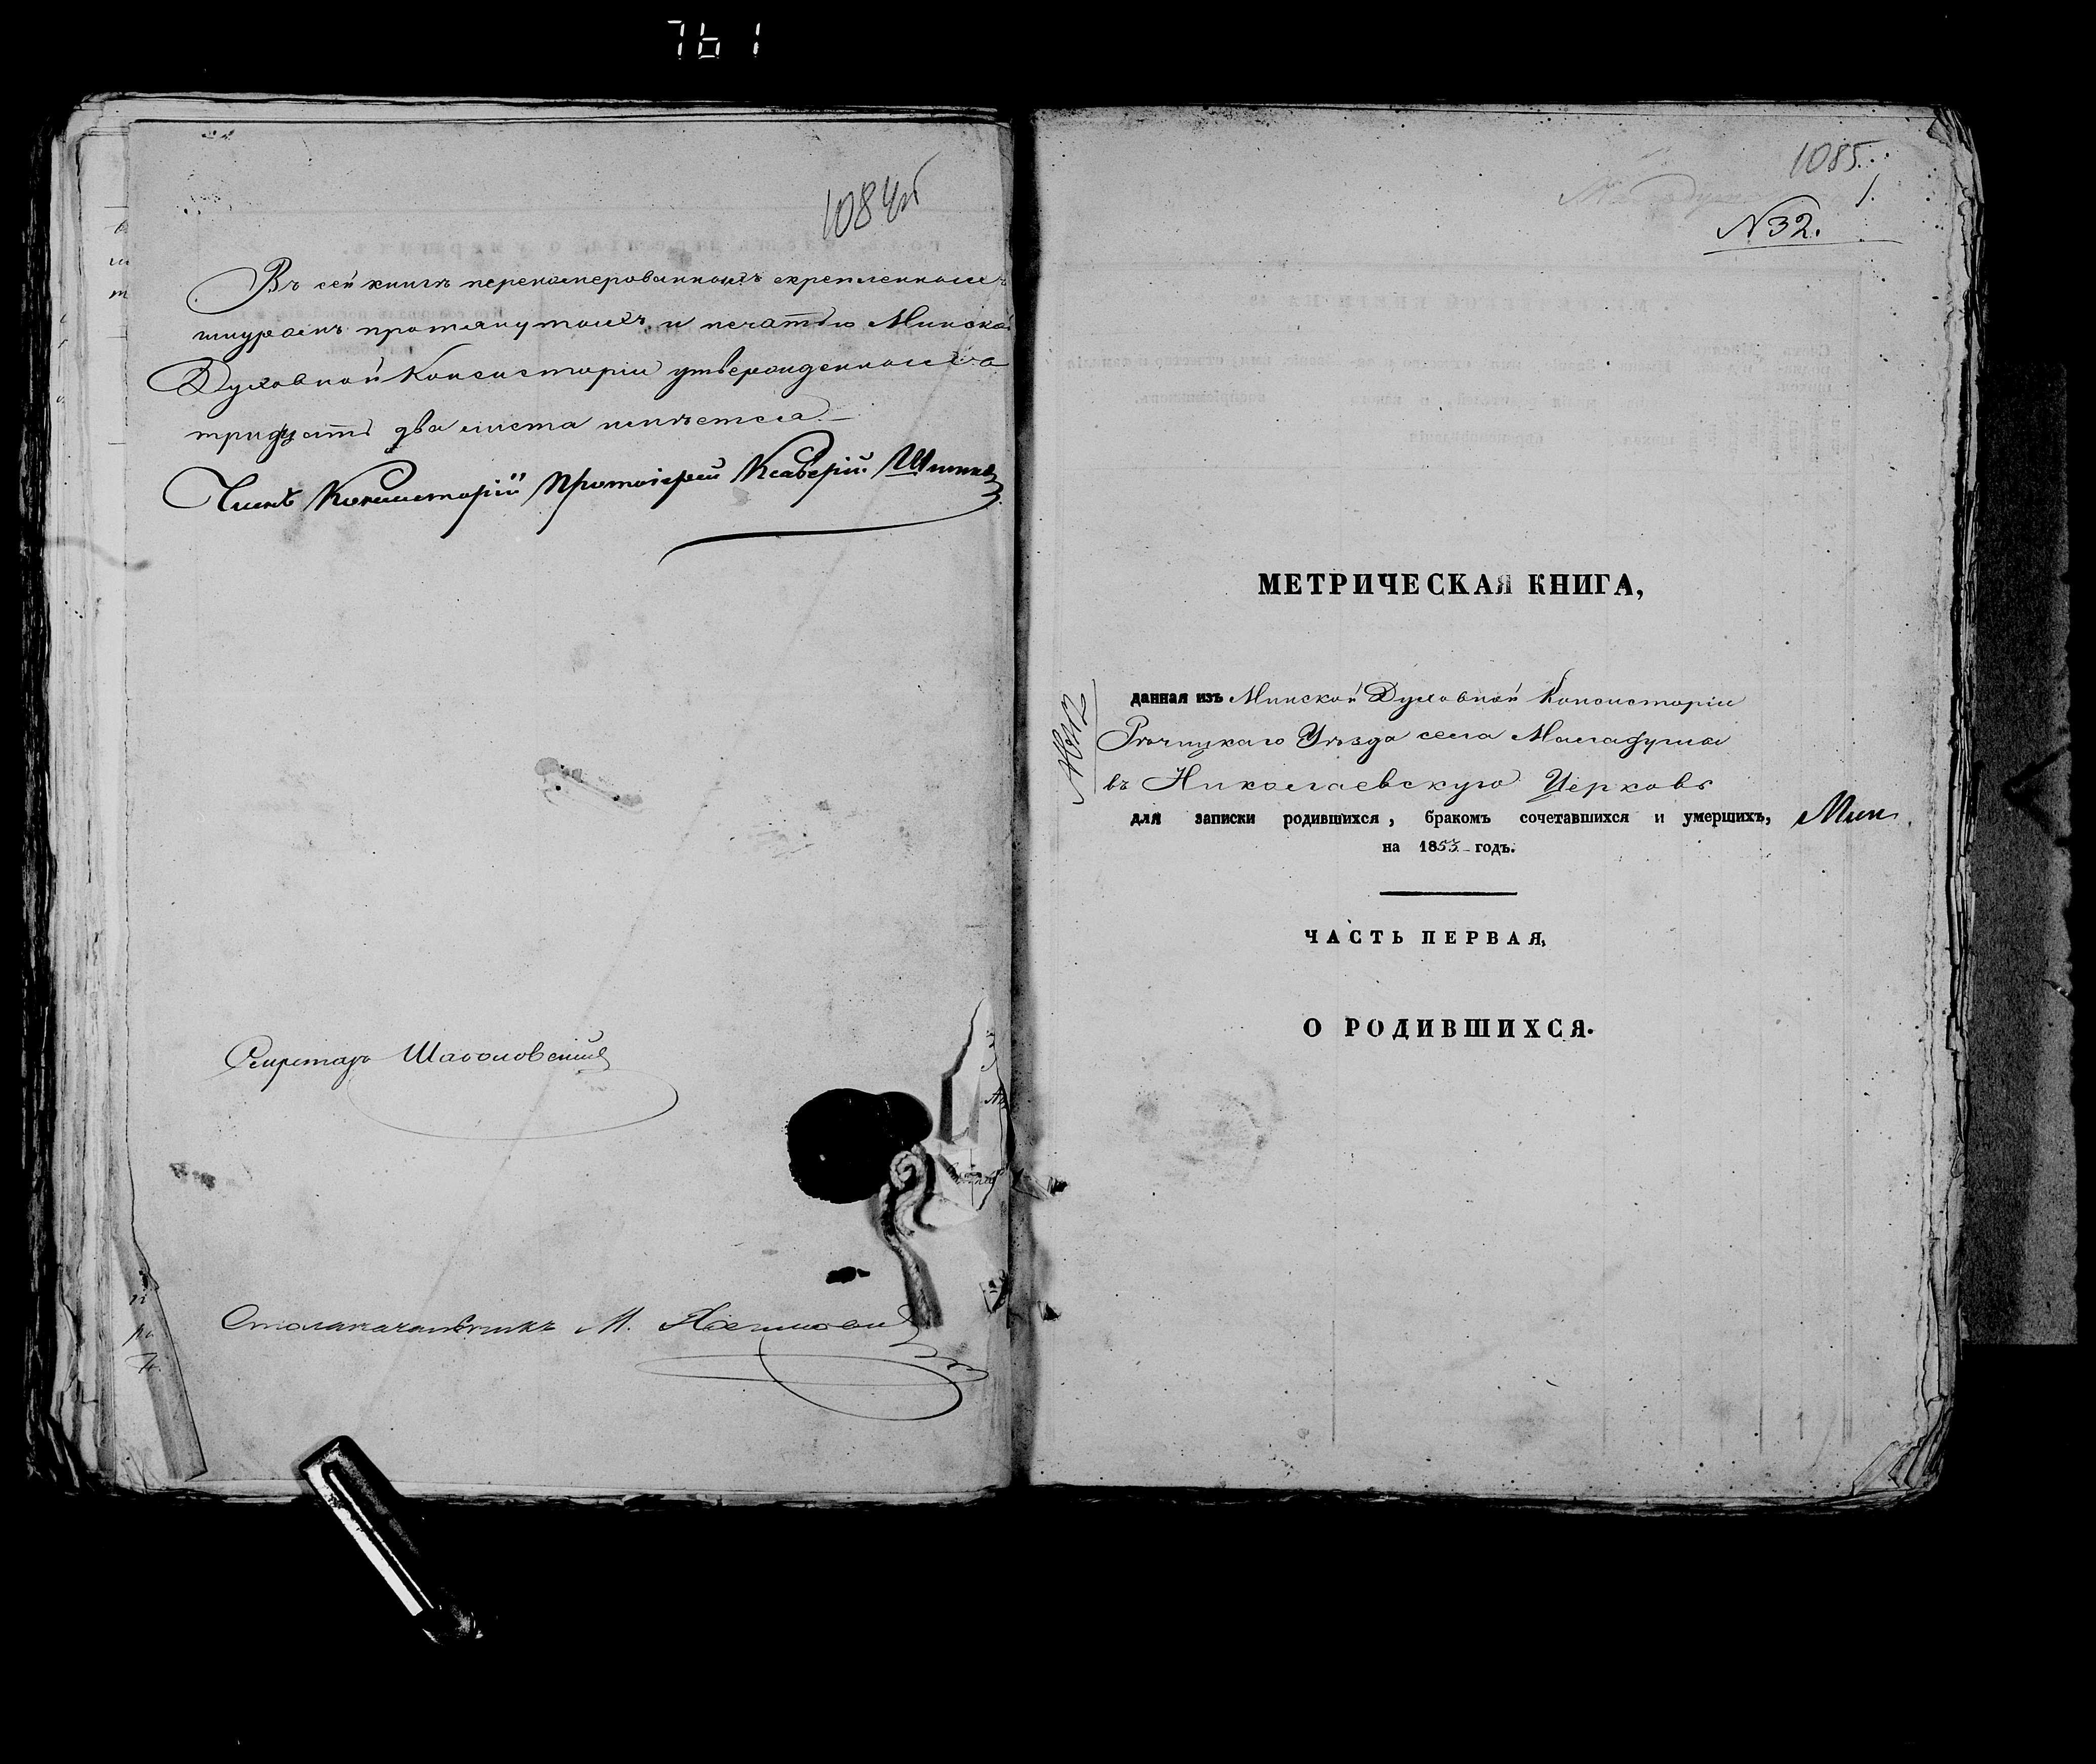 761
1084об
Въ сей книгѣ перенумерованныхъ скрепленныхъ
шнуромъ протянутыхъ и печатью Минской
Духовной Консисторіи утвержденныхъ
тридцать два листа имѣется.
Членъ Консисторіи Протоіерей Ксаверій
Секретарь
Столоначальникъ М.
1085
1.
N32.
МЕТРИЧЕСКАЯ КНИГА,
данная изъ Минской Духовной Консисторіи
Рѣчицкаго Уѣзда села Маладуша
въ Николаевскую Церковь
для записки родившихся, бракомъ сочетавшихся и умершихъ,
на 1853 годъ.
ЧАСТЬ ПЕРВАЯ,
О РОДИВШИХСЯ.